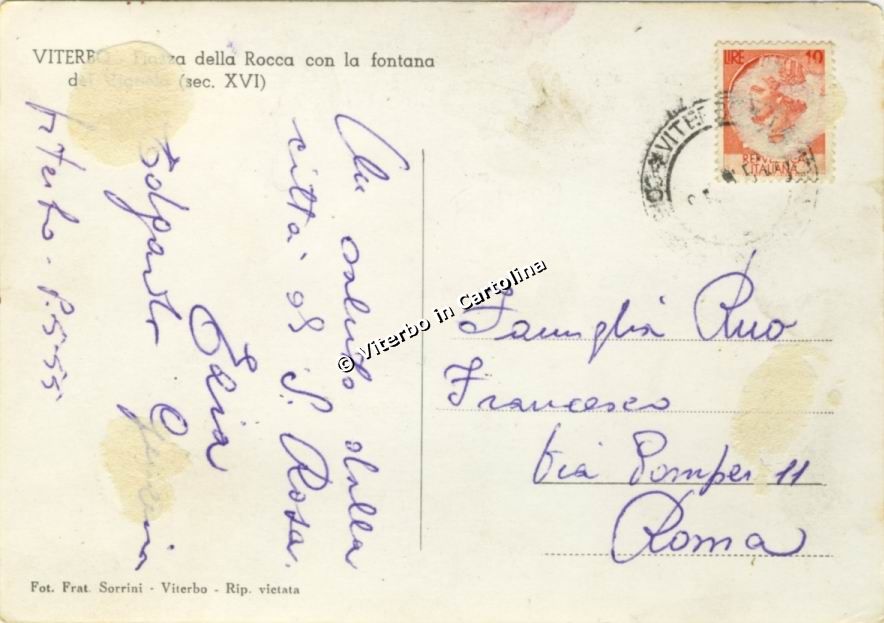 VITERBO Piazza della Rocca con la fontana
del (sec. XVI)
LIRE 10
REPVBBLICA
ITALIANA
VITERBO
Un saluto dalla
città di S. Rosa.
Elia
Edgardo
Viterbo - 8.5.55
Famiglia Ruo
Francesco
Via Pompei 11
Roma
© Viterbo in Cartolina
Fot. Frat. Sorrini - Viterbo - Rip. vietata